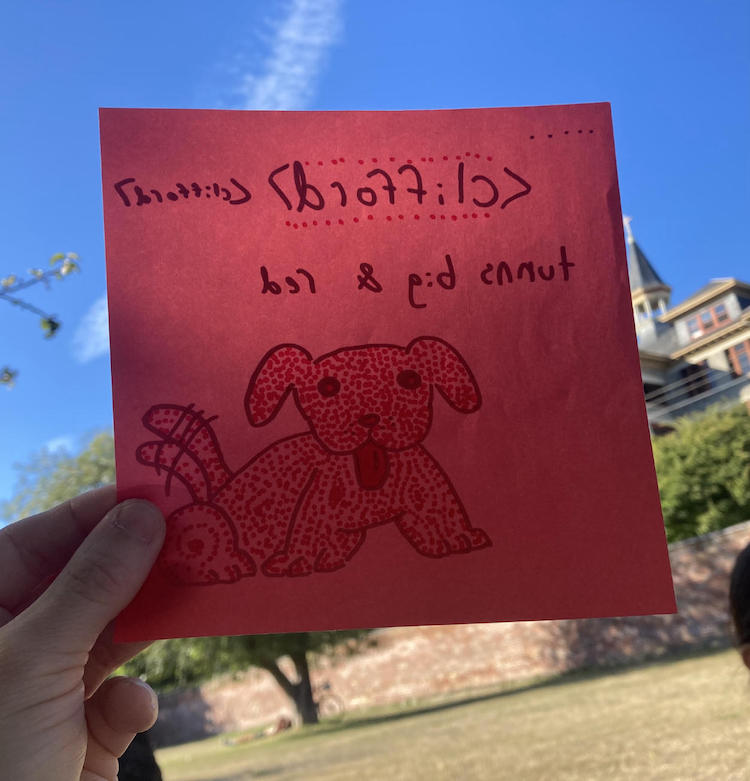 <clifford> <clifford>
turns big & red